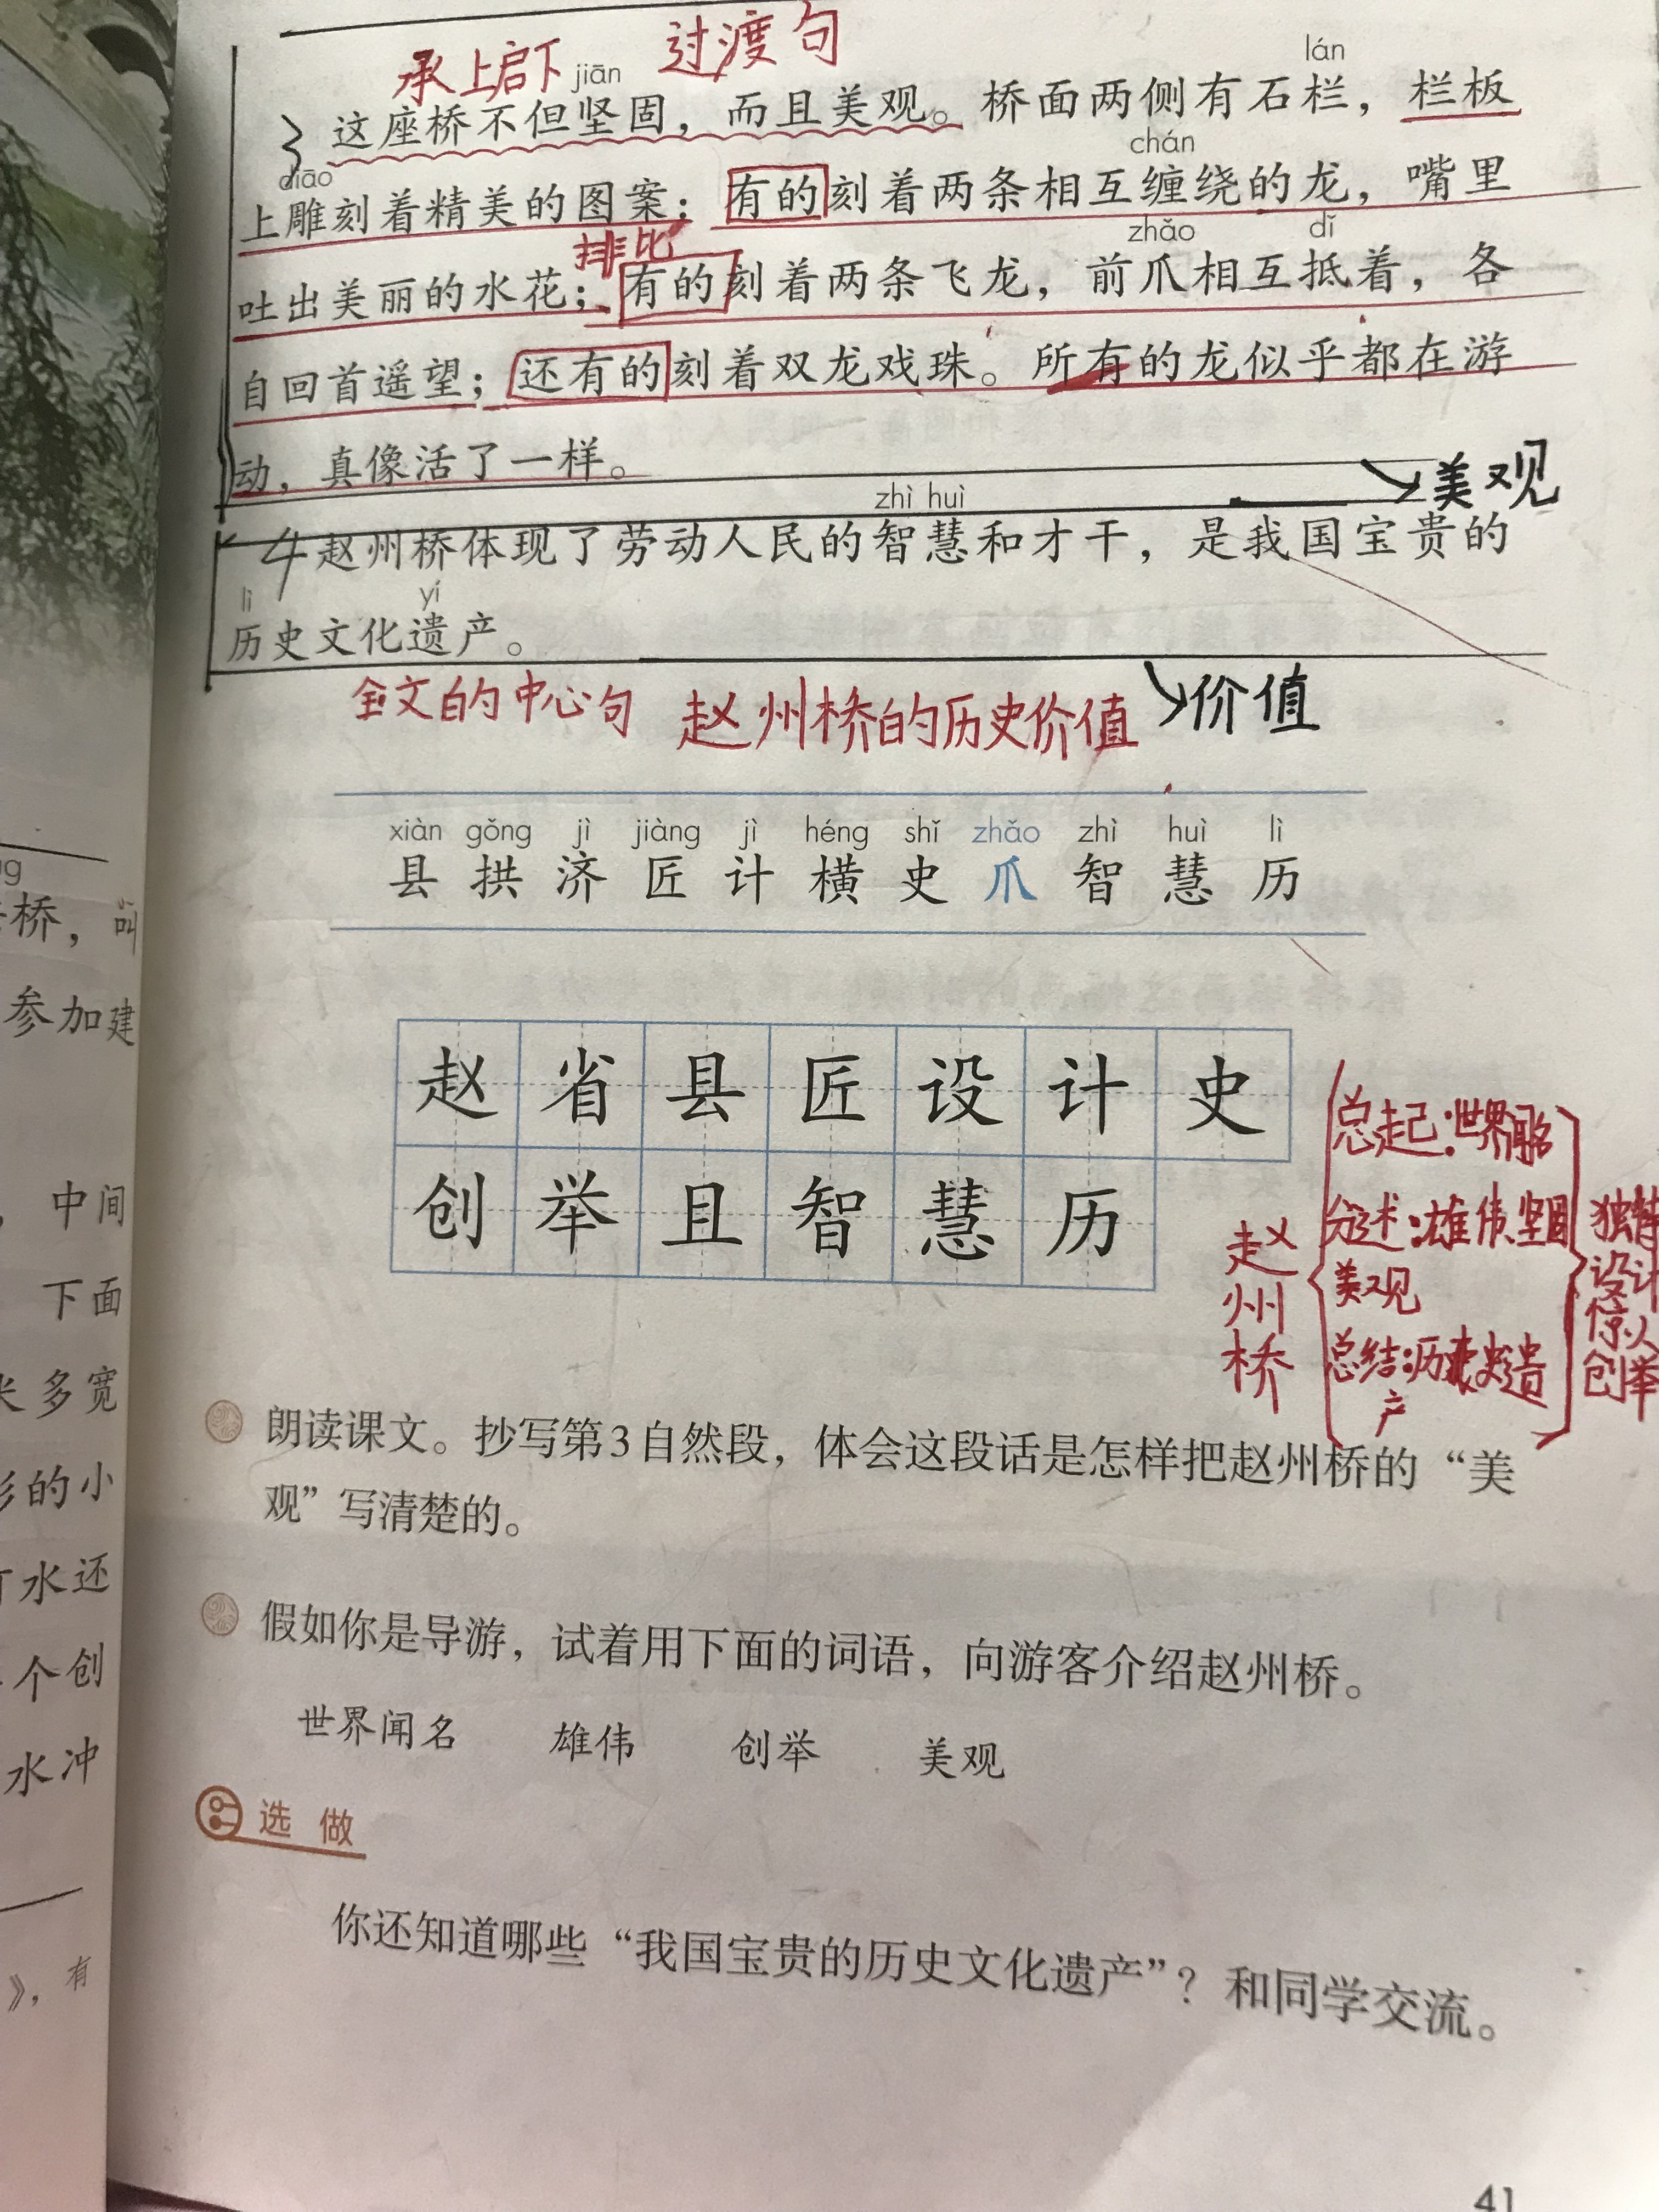 承上启下 过渡句
jiān lán
3 这座桥不但坚固，而且美观。桥面两侧有石栏，栏板
diāo chán
上雕刻着精美的图案：有的刻着两条相互缠绕的龙，嘴里
排比 zhǎo dǐ
吐出美丽的水花；有的刻着两条飞龙，前爪相互抵着，各
自回首遥望；还有的刻着双龙戏珠。所有的龙似乎都在游
动，真像活了一样。
美观
zhì huì
4 赵州桥体现了劳动人民的智慧和才干，是我国宝贵的
lì yí
历史文化遗产。
全文的中心句 赵州桥的历史价值 价值
xiàn gǒng jì jiàng jì héng shǐ zhǎo zhì huì lì
县 拱 济 匠 计 横 史 爪 智 慧 历
赵 省 县 匠 设 计 史
创 举 且 智 慧 历
赵州桥
总起：世界闻名
分述：雄伟、坚固
美观
总结：历史遗
产
独特
设计
惊人
创举
朗读课文。抄写第3自然段，体会这段话是怎样把赵州桥的“美
观”写清楚的。
假如你是导游，试着用下面的词语，向游客介绍赵州桥。
世界闻名 雄伟 创举 美观
选做
你还知道哪些“我国宝贵的历史文化遗产”？和同学交流。
41
桥，叫
参加建
，中间
下面
米多宽
形的小
水还
个创
水冲
》，有